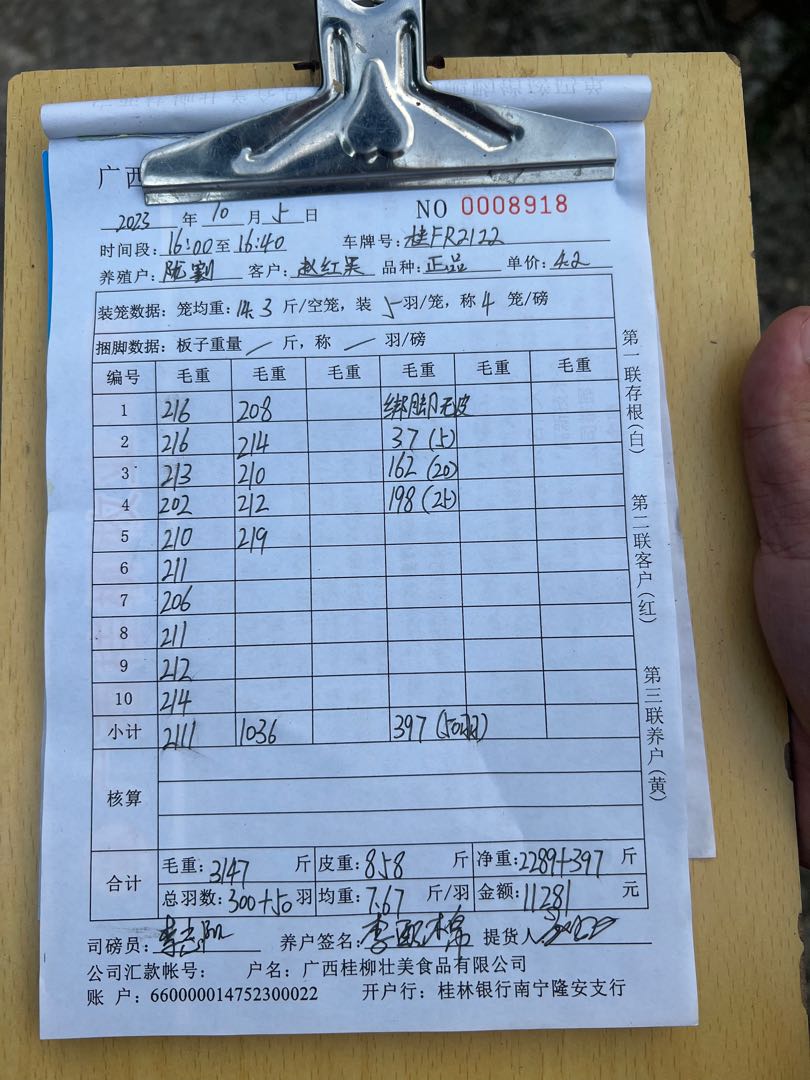 广西
2023 年 10 月 5 日 NO 0008918
时间段: 16:00 至 16:40 车牌号: 桂FR2122
养殖户: 客户: 赵红 品种: 正品 单价: 4.2
装笼数据: 笼均重: 14.3 斤/空笼, 装 5 羽/笼, 称 4 笼/磅
捆脚数据: 板子重量 / 斤, 称 / 羽/磅
编号 毛重 毛重 毛重 毛重 毛重 毛重
1 216 208 绑脚无皮
2 216 214 37(5)
3 213 210 162(20)
4 202 212 198(25)
5 210 219
6 211
7 206
8 211
9 212
10 214
小计 2111 1036 397(50羽)
核算
合计 毛重: 3147 斤 皮重: 858 斤 净重: 2289+397 斤
总羽数: 300+50 羽 均重: 7.67 斤/羽 金额: 11281 元
司磅员: 养户签名: 提货人:
公司汇款帐号: 户名: 广西桂柳壮美食品有限公司
账 户: 660000014752300022 开户行: 桂林银行南宁隆安支行
第一联存根(白)
第二联客户(红)
第三联养户(黄)